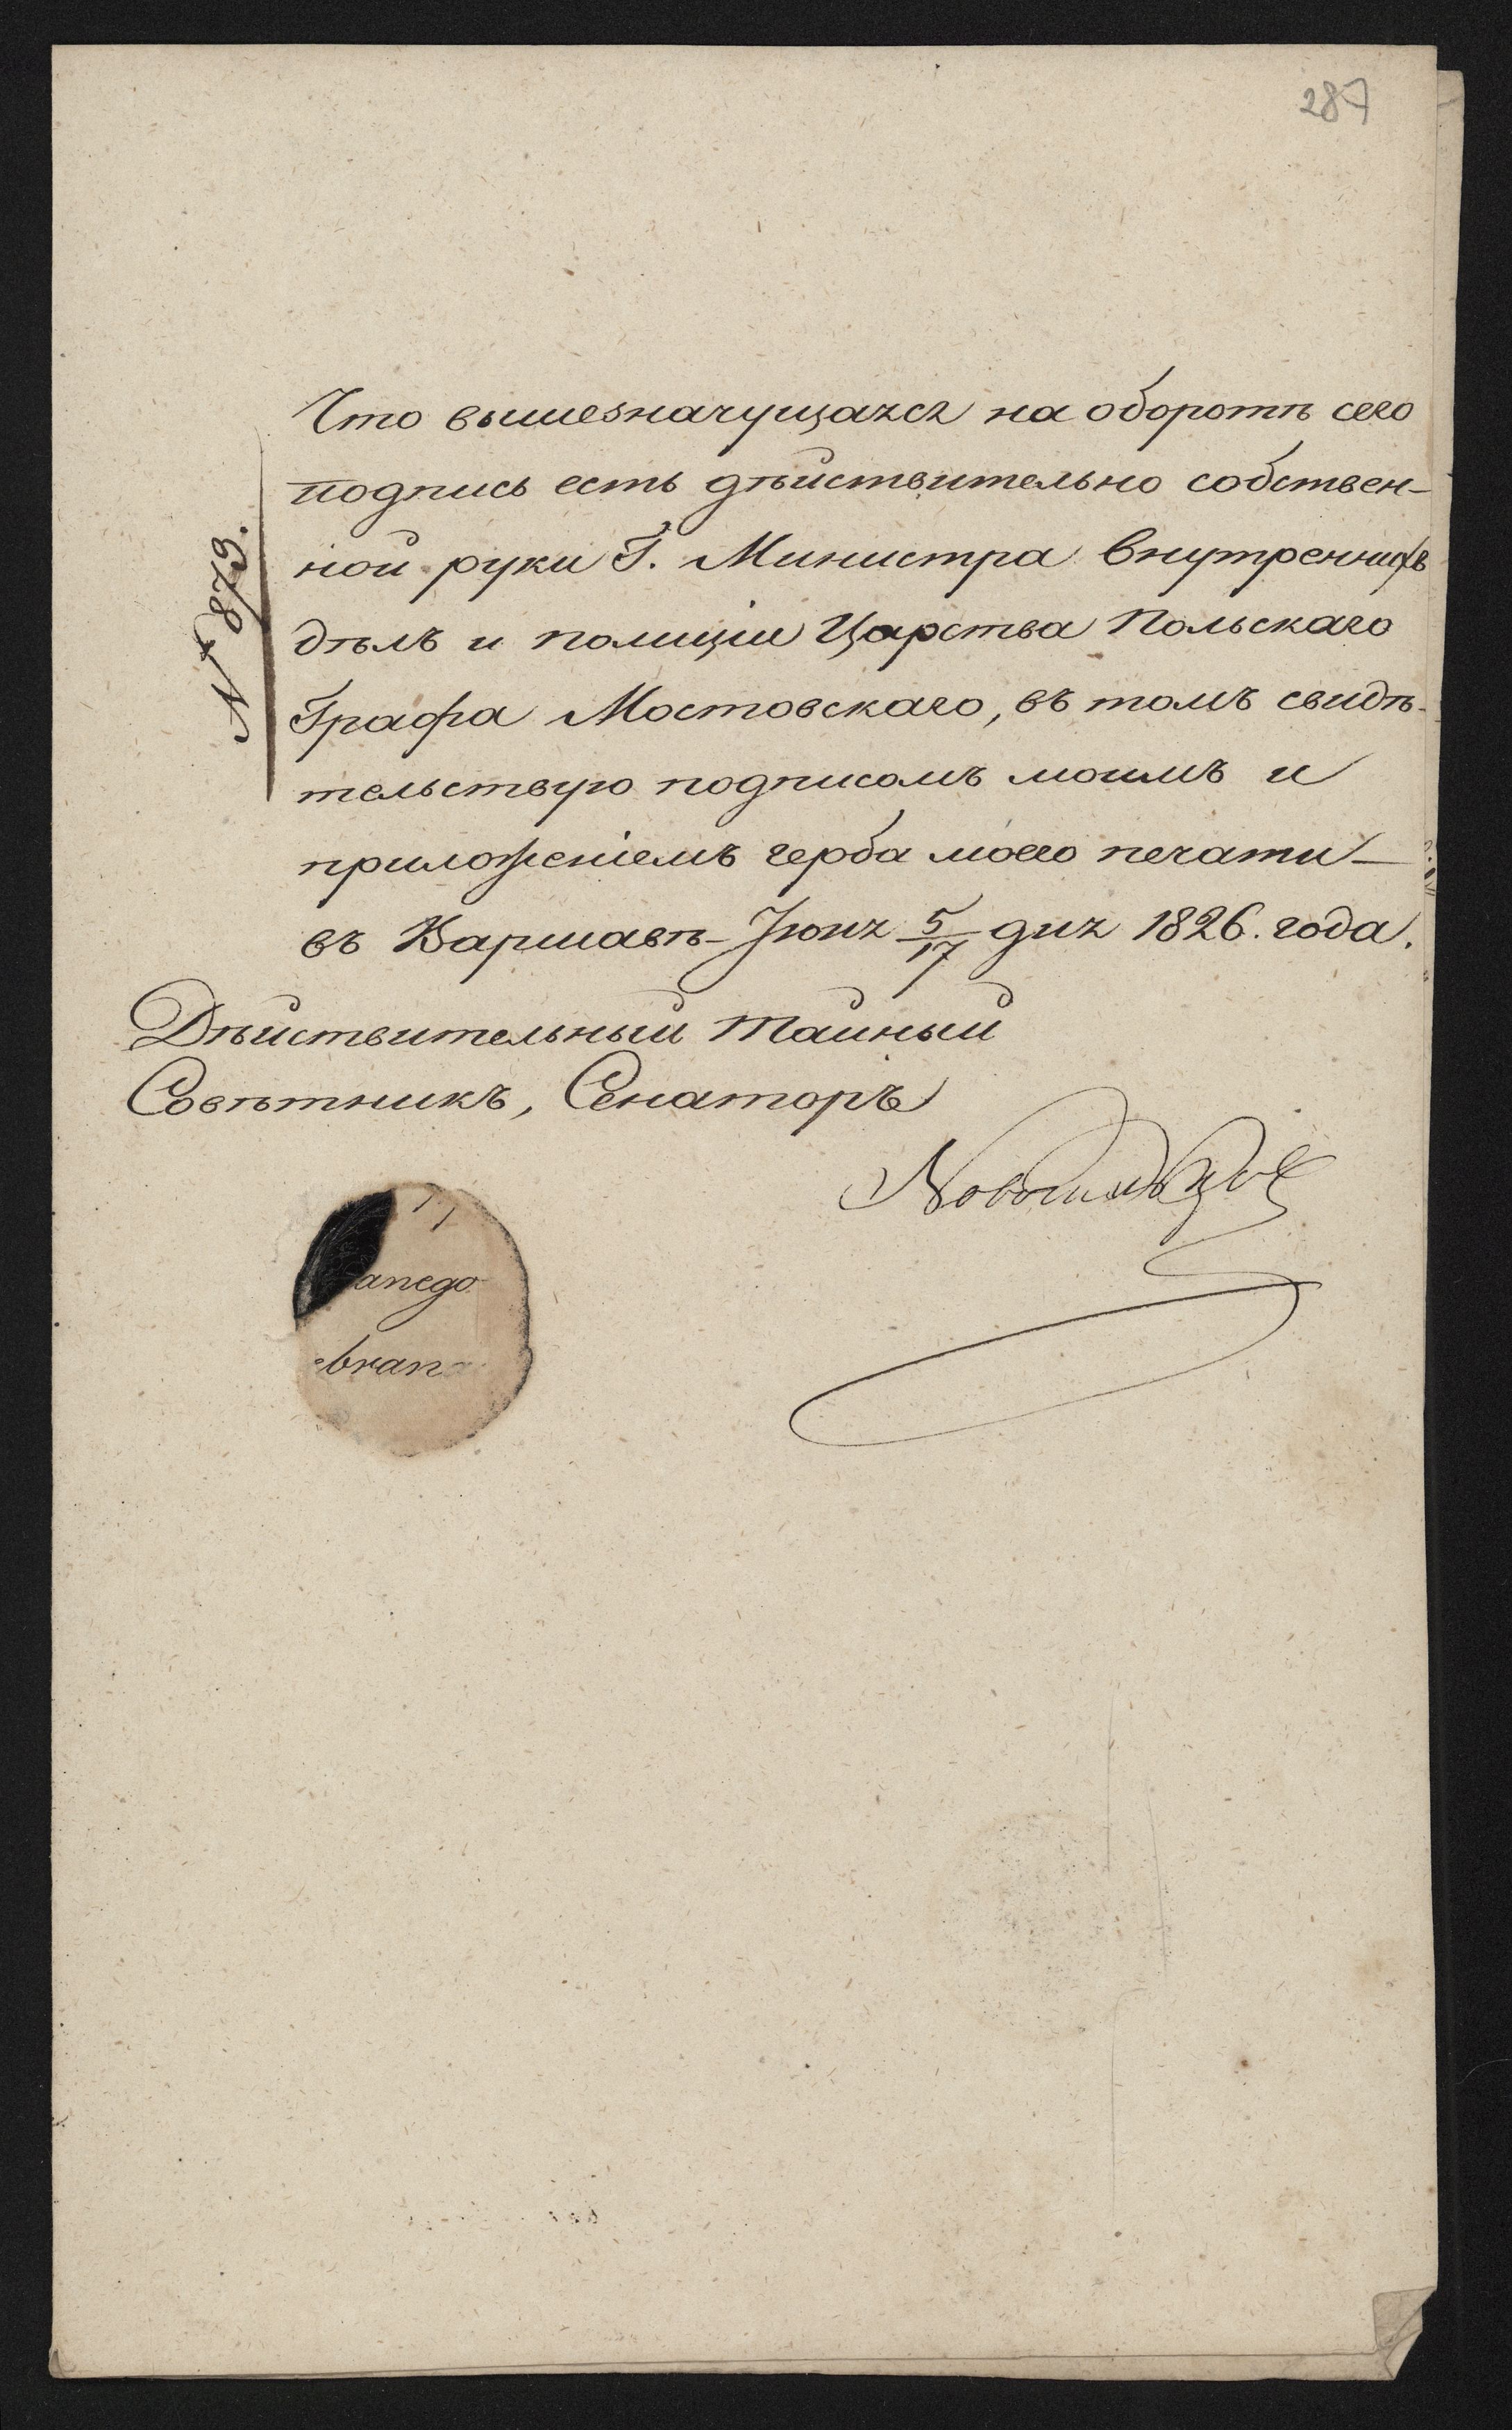 287
N 879.
Что вышезначущаяся на оборотѣ сего
подпись есть дѣйствительно собствен-
ной руки Г. Министра Внутреннихъ
дѣлъ и полиціи Царства Польскаго
Графа Мостовскаго, въ томъ свидѣ-
тельствую подписомъ моимъ и
приложеніемъ герба моего печати
въ Варшавѣ Іюня 5/17 дня 1826. года.
Дѣйствительный Тайный
Совѣтникъ, Сенаторъ
Новосильцов
anego
ebran